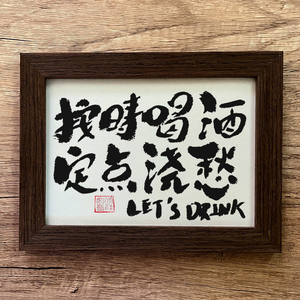 按時喝酒
定点浇愁
LET'S DRINK